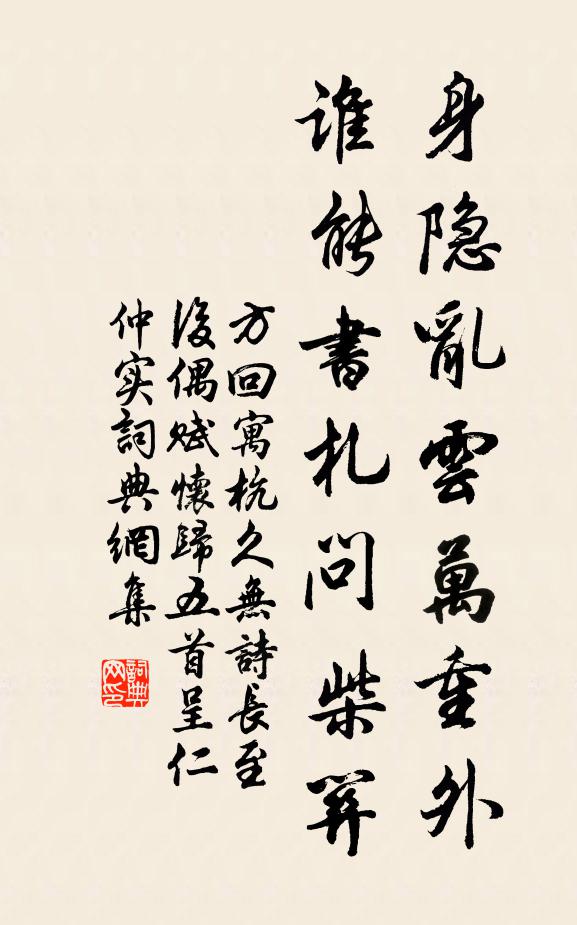 身隐亂雲萬重外
誰能書札問柴關
方回寓杭久無詩長至
後偶賦懷歸五首呈仁
仲实詞典網集
詞典网印